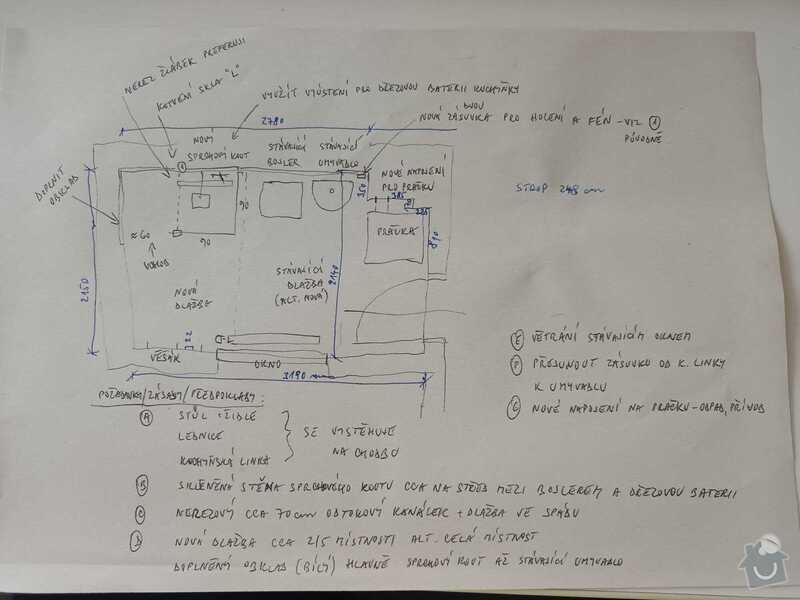 NEREZ ŽLÁBEK PREFERUJI
KOTVENÍ SKLA "L"
VYUŽÍT VYÚSTĚNÍ PRO DŘEZOVOU BATERII KUCHYŇKY
2780
NOVÁ ZÁSUVKA PRO HOLENÍ A FÉN - VIZ 1
PŮVODNĚ
NOVÝ
SPRCHOVÝ KOUT
STÁVAJÍCÍ
BOJLER
STÁVAJÍCÍ
UMYVADLO
NOVÉ NAPOJENÍ
PRO PRAČKU
STROP 248 cm
DOPLNIT
OBKLAD
350
385
225
PRAČKA
890
90
≈ 60
90
VCHOD
2150
NOVÁ
DLAŽBA
STÁVAJÍCÍ
DLAŽBA
(ALT. NOVÁ)
2140
22
VĚŠÁK
OKNO
3190 mm
E VĚTRÁNÍ STÁVAJÍCÍM OKNEM
F PŘESUNOUT ZÁSUVKU OD K. LINKY
K UMYVADLU
G NOVÉ NAPOJENÍ NA PRAČKU - ODPAD, PŘÍVOD
POŽADAVKY/ZÁSADY/PŘEDPOKLADY:
A STŮL + ŽIDLE
LEDNICE
KUCHYŇSKÁ LINKA
SE VYSTĚHUJE
NA CHODBU
B SKLENĚNÁ STĚNA SPRCHOVÉHO KOUTU CCA NA STŘED MEZI BOJLEREM A DŘEZOVOU BATERII
C NEREZOVÝ CCA 70 cm ODTOKOVÝ KANÁLEK + DLAŽBA VE SPÁDU
D NOVÁ DLAŽBA CCA 2/5 MÍSTNOSTI ALT. CELÁ MÍSTNOST
DOPLNĚNÝ OBKLAD (BÍLÝ) HLAVNĚ SPRCHOVÝ KOUT AŽ STÁVAJÍCÍ UMYVADLO